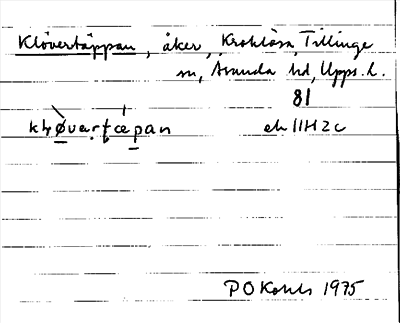 Klövertäppan, åker, Kroklösa, Tillinge
sn, Åsunda hd, Upps. l.
81
ek 11H2c
P O Kohls 1975